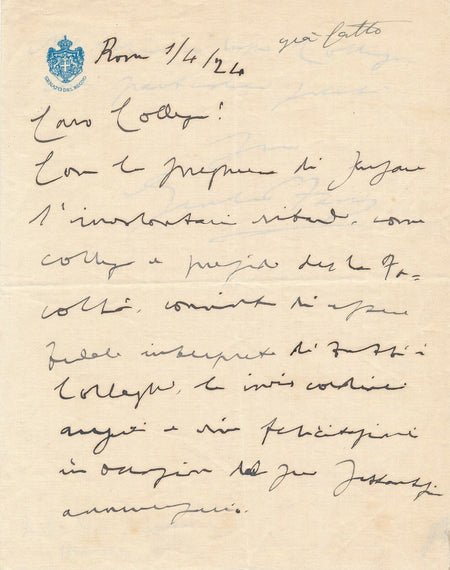 già fatto
SENATO DEL REGNO
Roma 1/4/24
Caro Collega!
Con la preghiera di scusare
l'involontario ritardo, come
collega e preside della Fa-
coltà, convinto di essere
fedele interprete di tutti i
Colleghi, le invio cordiali
auguri e vive felicitazioni
in occasione del suo settantesimo
anniversario.